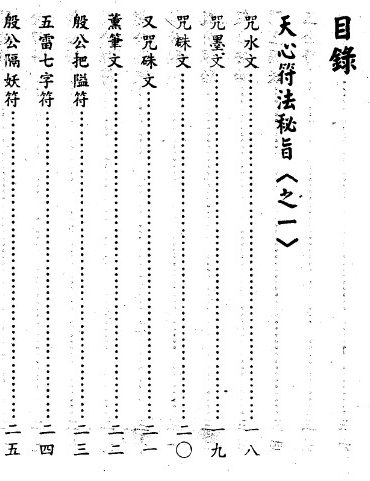 目錄
天心符法秘旨〈之一〉
咒水文……一八
咒墨文……一九
咒硃文……二〇
又咒硃文……二一
薰筆文……二二
殷公把隘符……二三
五雷七字符……二四
殷公隔妖符……二五